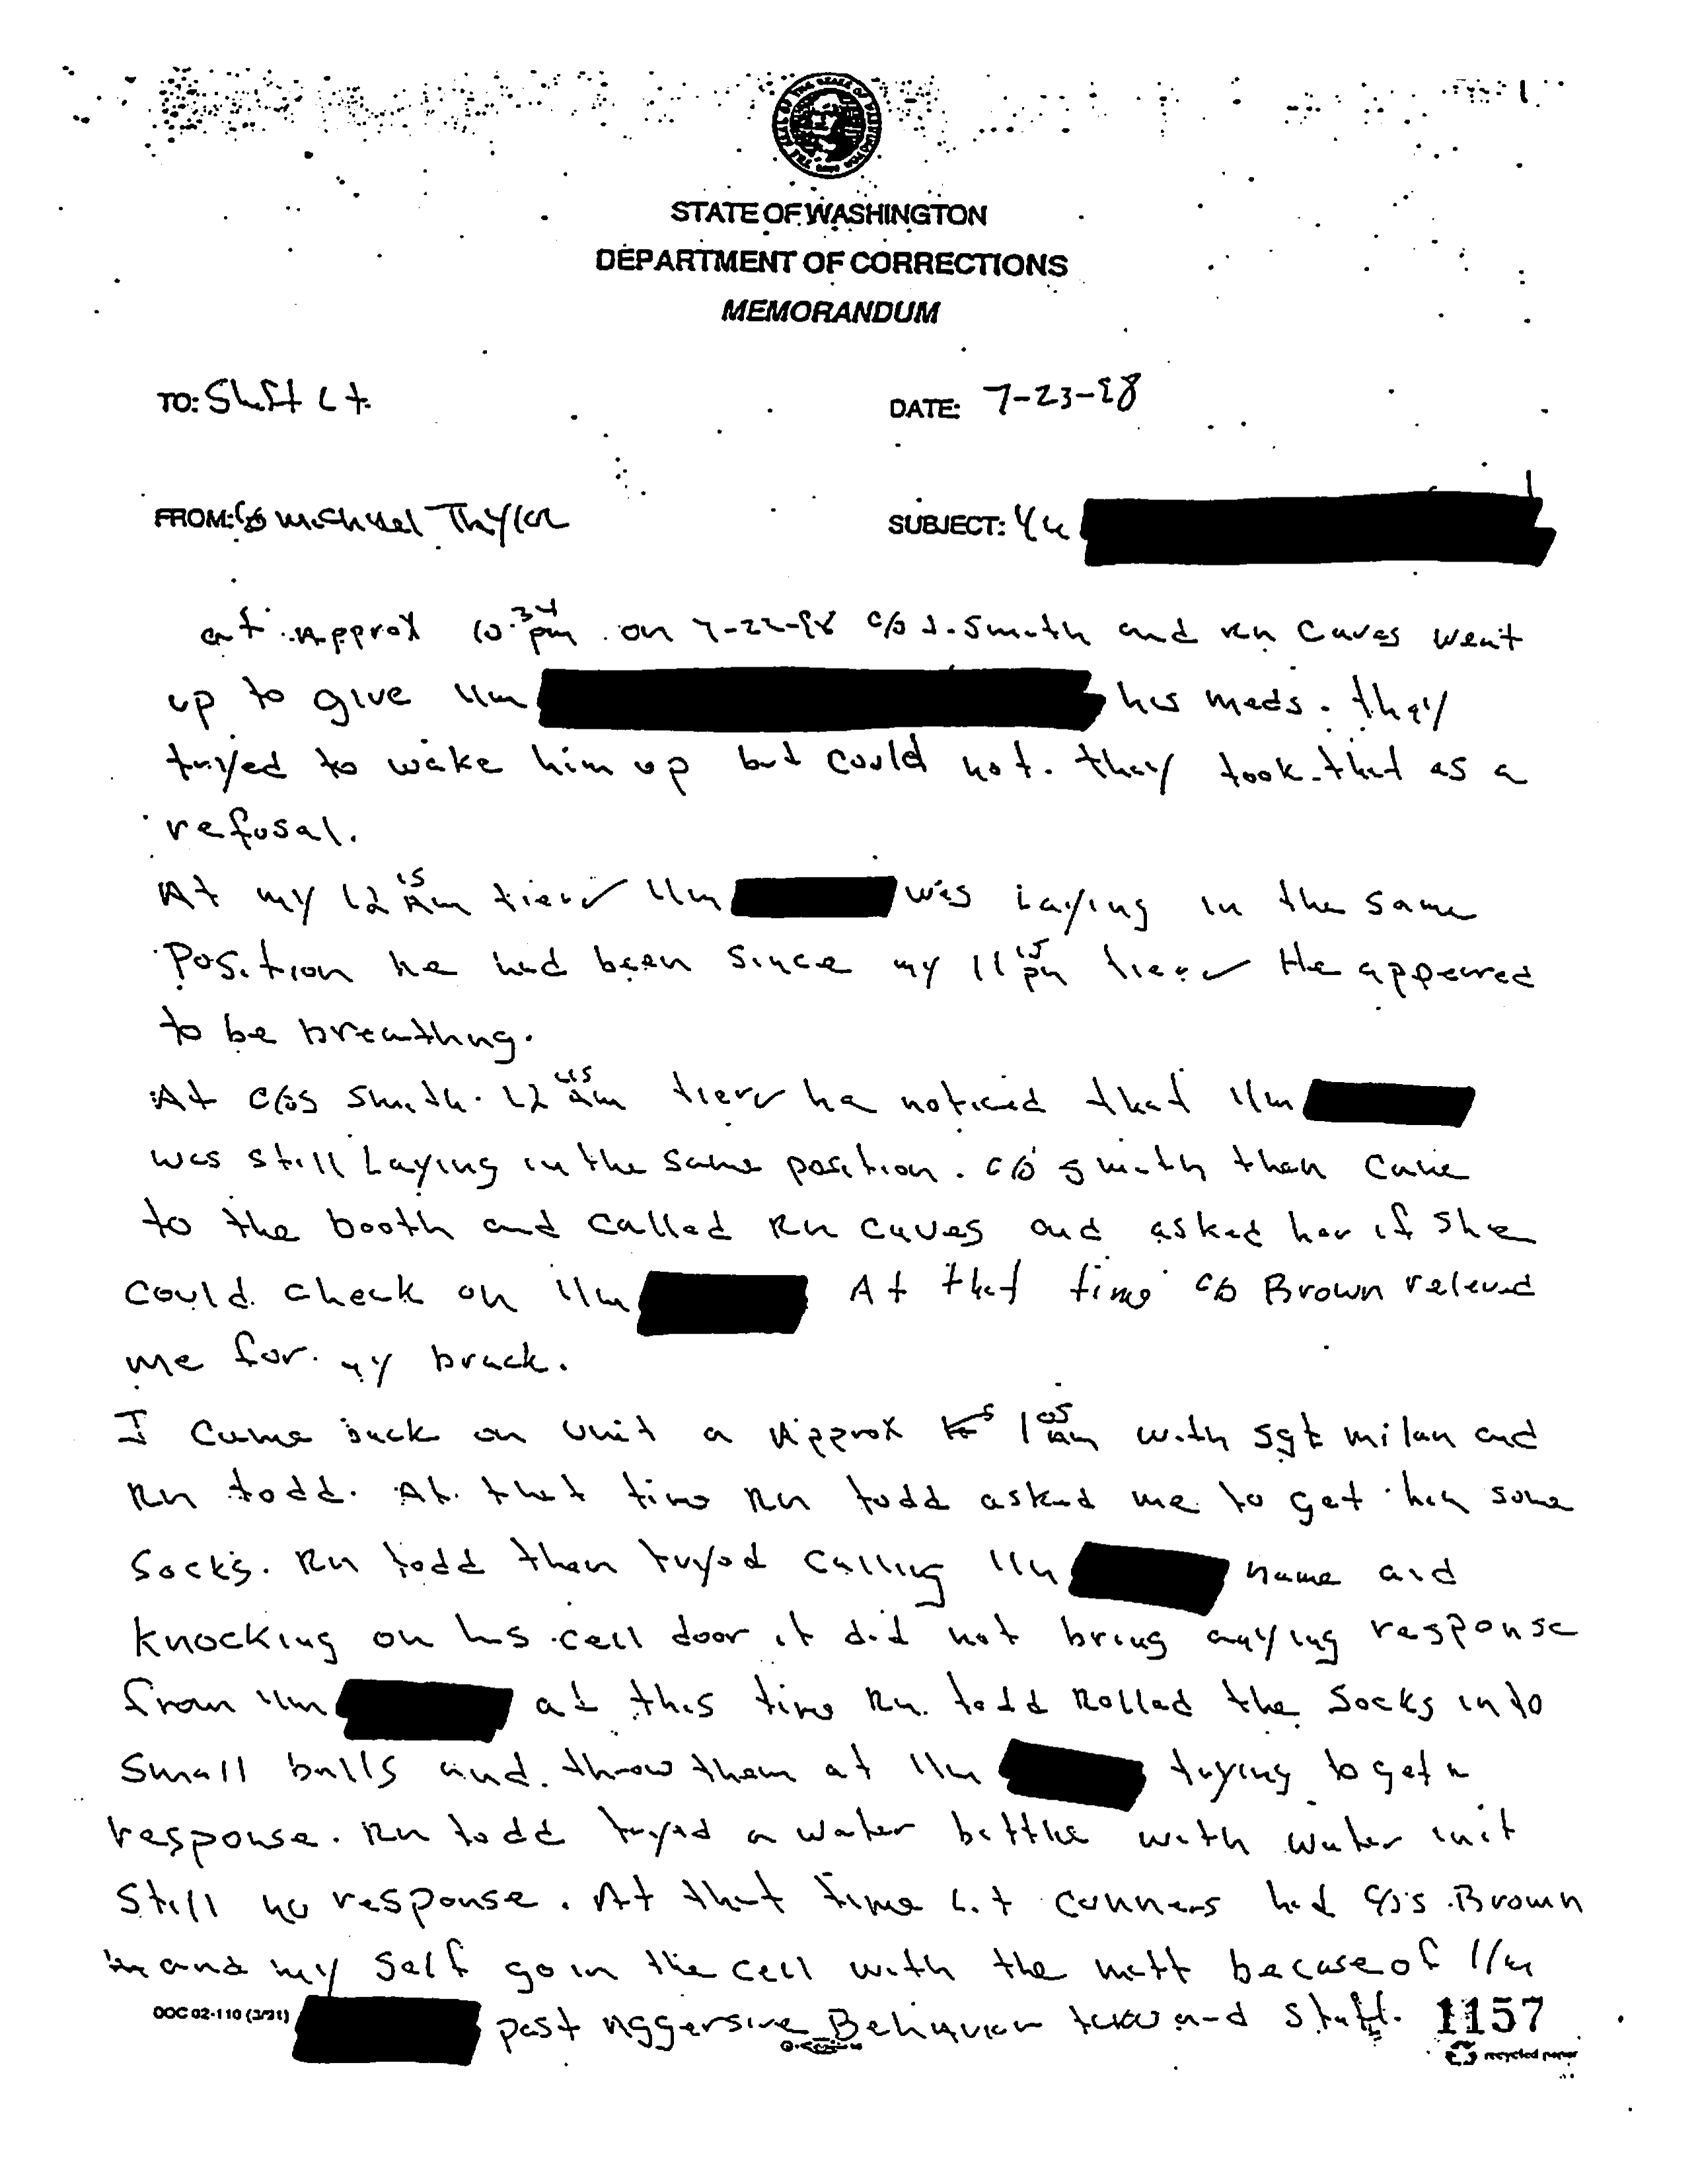 STATE OF WASHINGTON
DEPARTMENT OF CORRECTIONS
MEMORANDUM
TO: Shift Lt.
DATE: 7-23-98
FROM: C/O Michael Thylor
SUBJECT: I/M
at Approx 10:34 pm on 7-22-98 C/O J. Smith and RN Caves went
up to give I/m his meds. they
tryed to wake him up but could not. they took that as a
refusal.
At my 12 15 Am tier ✓ I/m was Laying in the same
Position he had been since my 11 15 pm tier ✓ He appeared
to be breathng.
At C/O S Smith 12 45 am tier ✓ he noticed that I/m
was still Laying in the same position. C/O Smith then came
to the booth and called RN Caves and asked her if she
could check on I/m At that time C/O Brown releved
me for my brack.
I came back on unit a Approx 1 05 am with Sgt milan and
RN todd. At that time RN todd asked me to get her some
socks. RN todd then tryed calling I/m name and
knocking on his cell door it did not bring anying response
from I/m at this time RN. todd Rolled the Socks into
small balls and throw them at I/m trying to get a
response. RN todd tryed a water bottle with water init
Still no response. At that time Lt Conners had C/O's Brown
and my self go in the cell with the matt becase of I/m
DOC 02-110 (3/91) past Aggersive Behavior toward staff. 1157
recycled paper